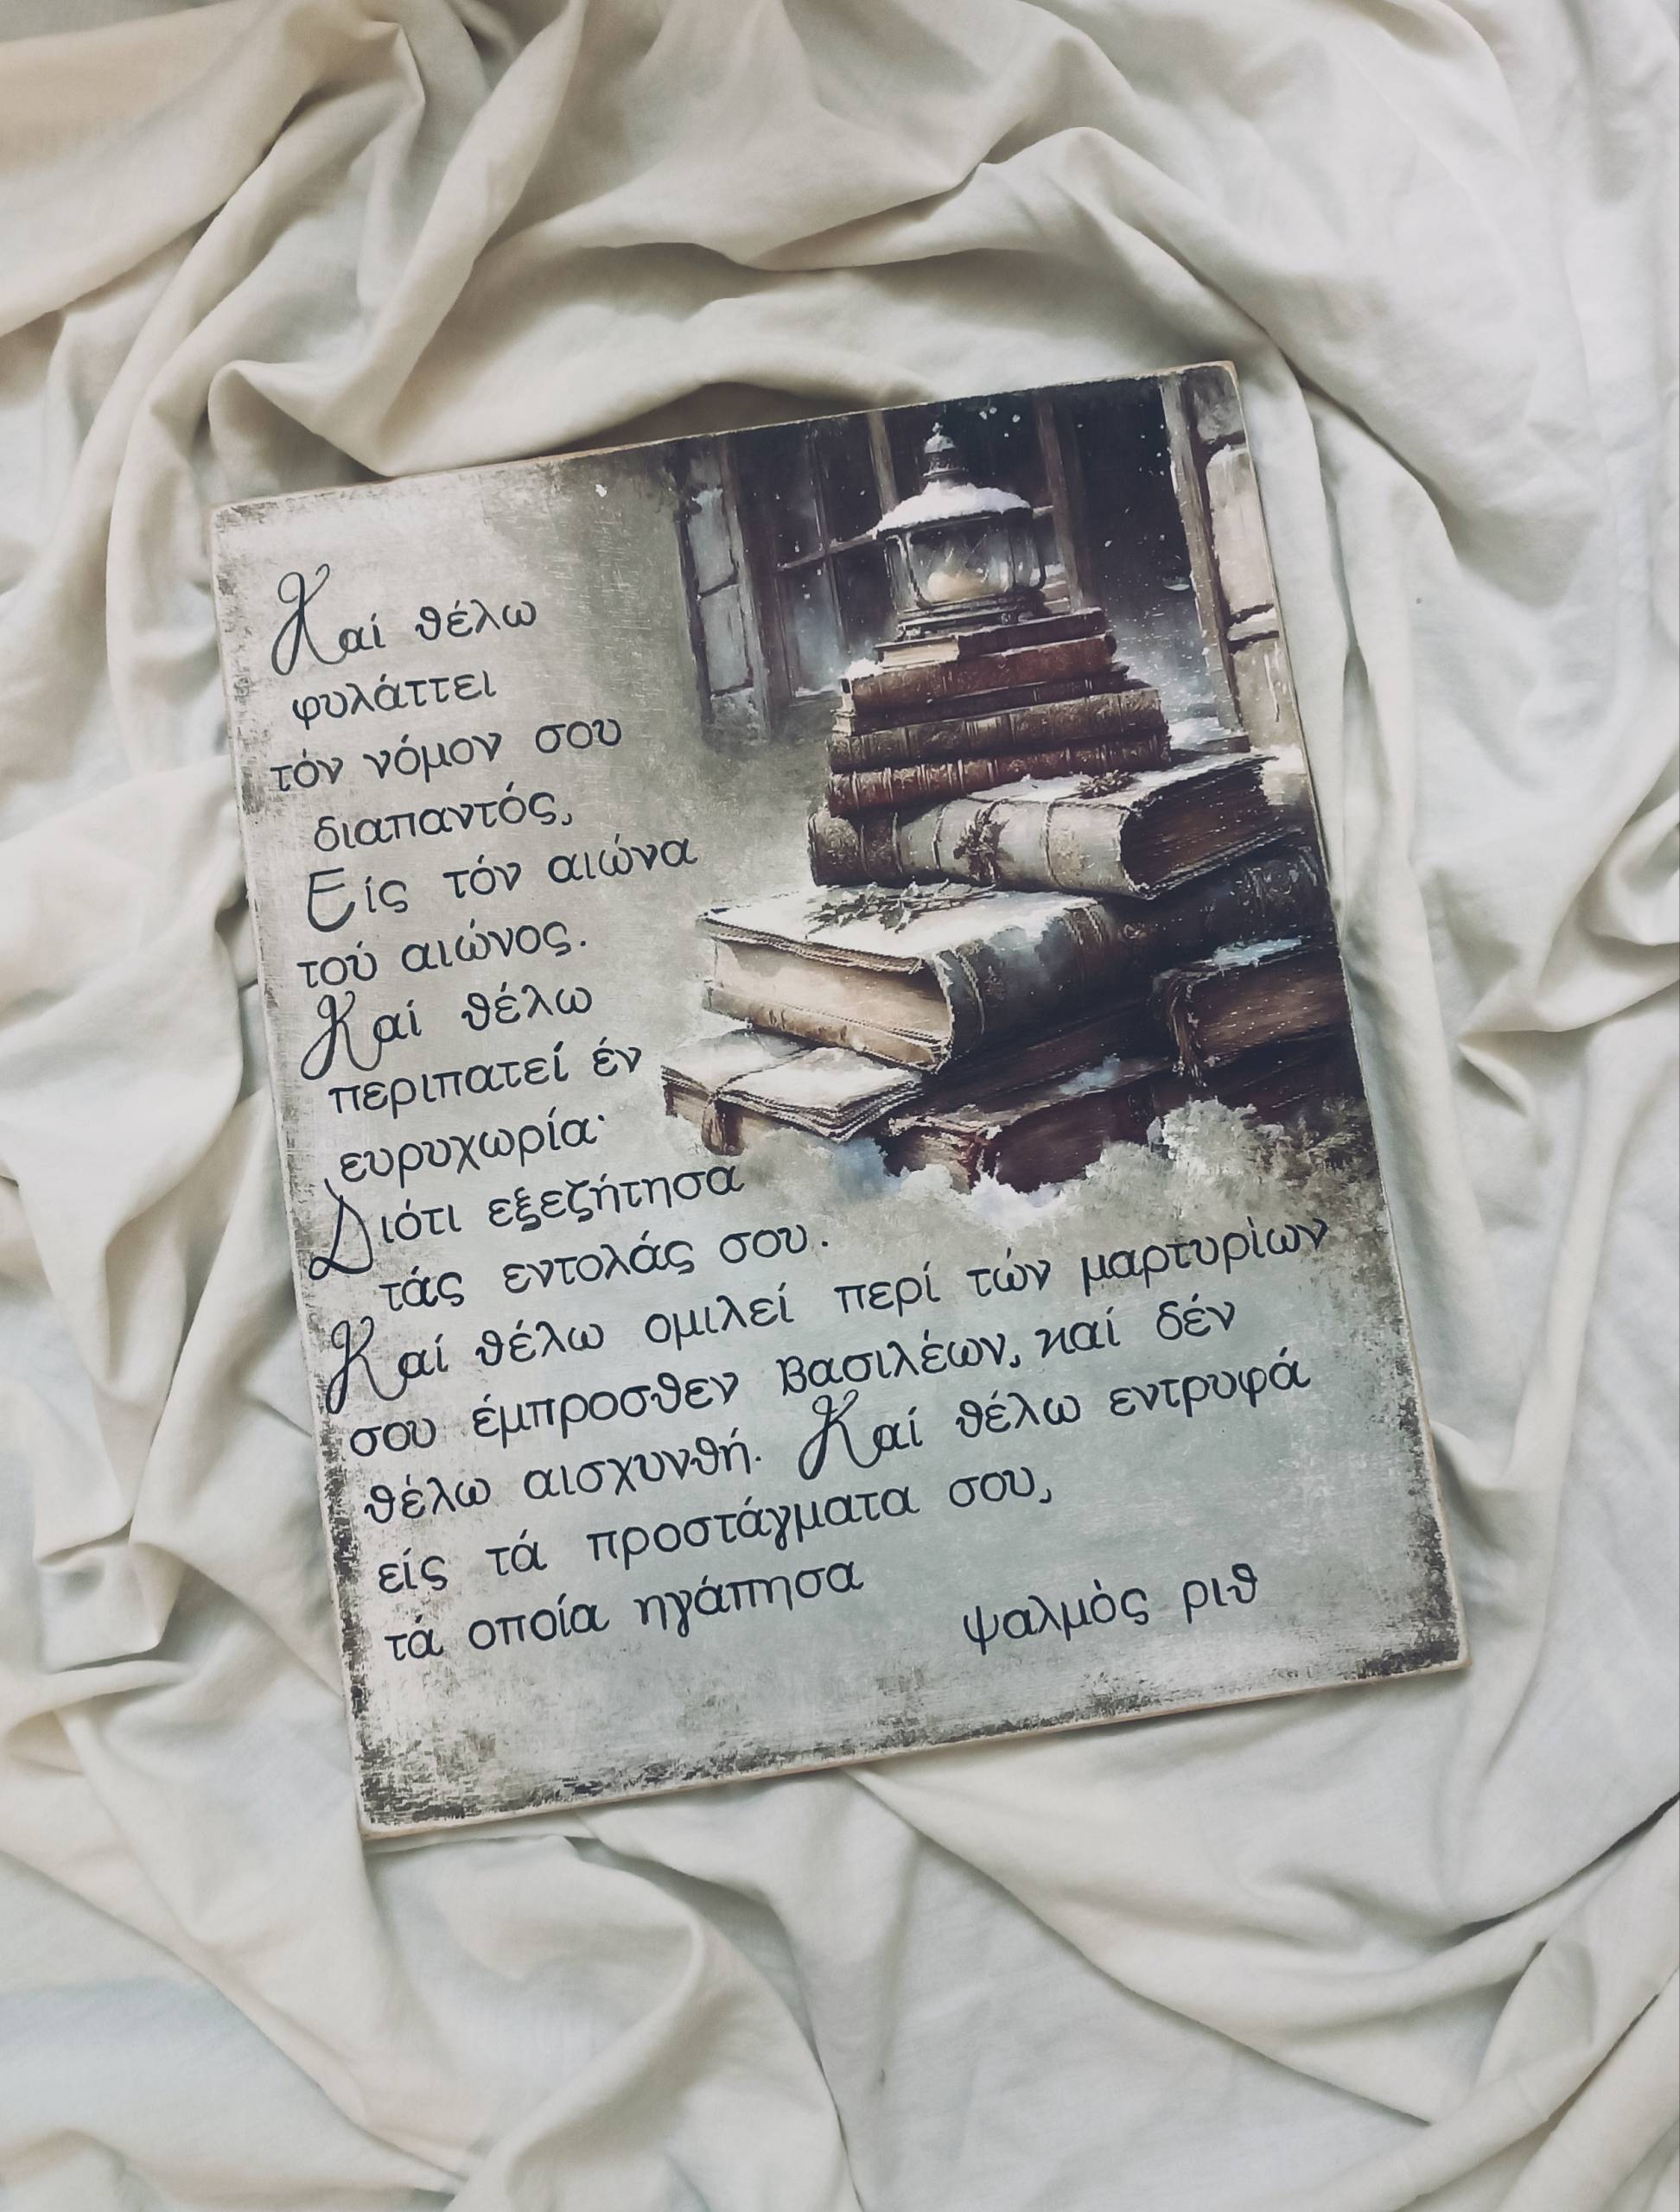 Καί θέλω
φυλάττει
τόν νόμον σου
διαπαντός,
Είς τόν αιώνα
τού αιώνος.
Καί θέλω
περιπατεί έν
ευρυχωρία·
Διότι εξεζήτησα
τάς εντολάς σου.
Καί θέλω ομιλεί περί τών μαρτυρίων
σου έμπροσθεν βασιλέων, καί δέν
θέλω αισχυνθή. Καί θέλω εντρυφά
είς τά προστάγματα σου,
τά οποία ηγάπησα
ψαλμὸς ριθ